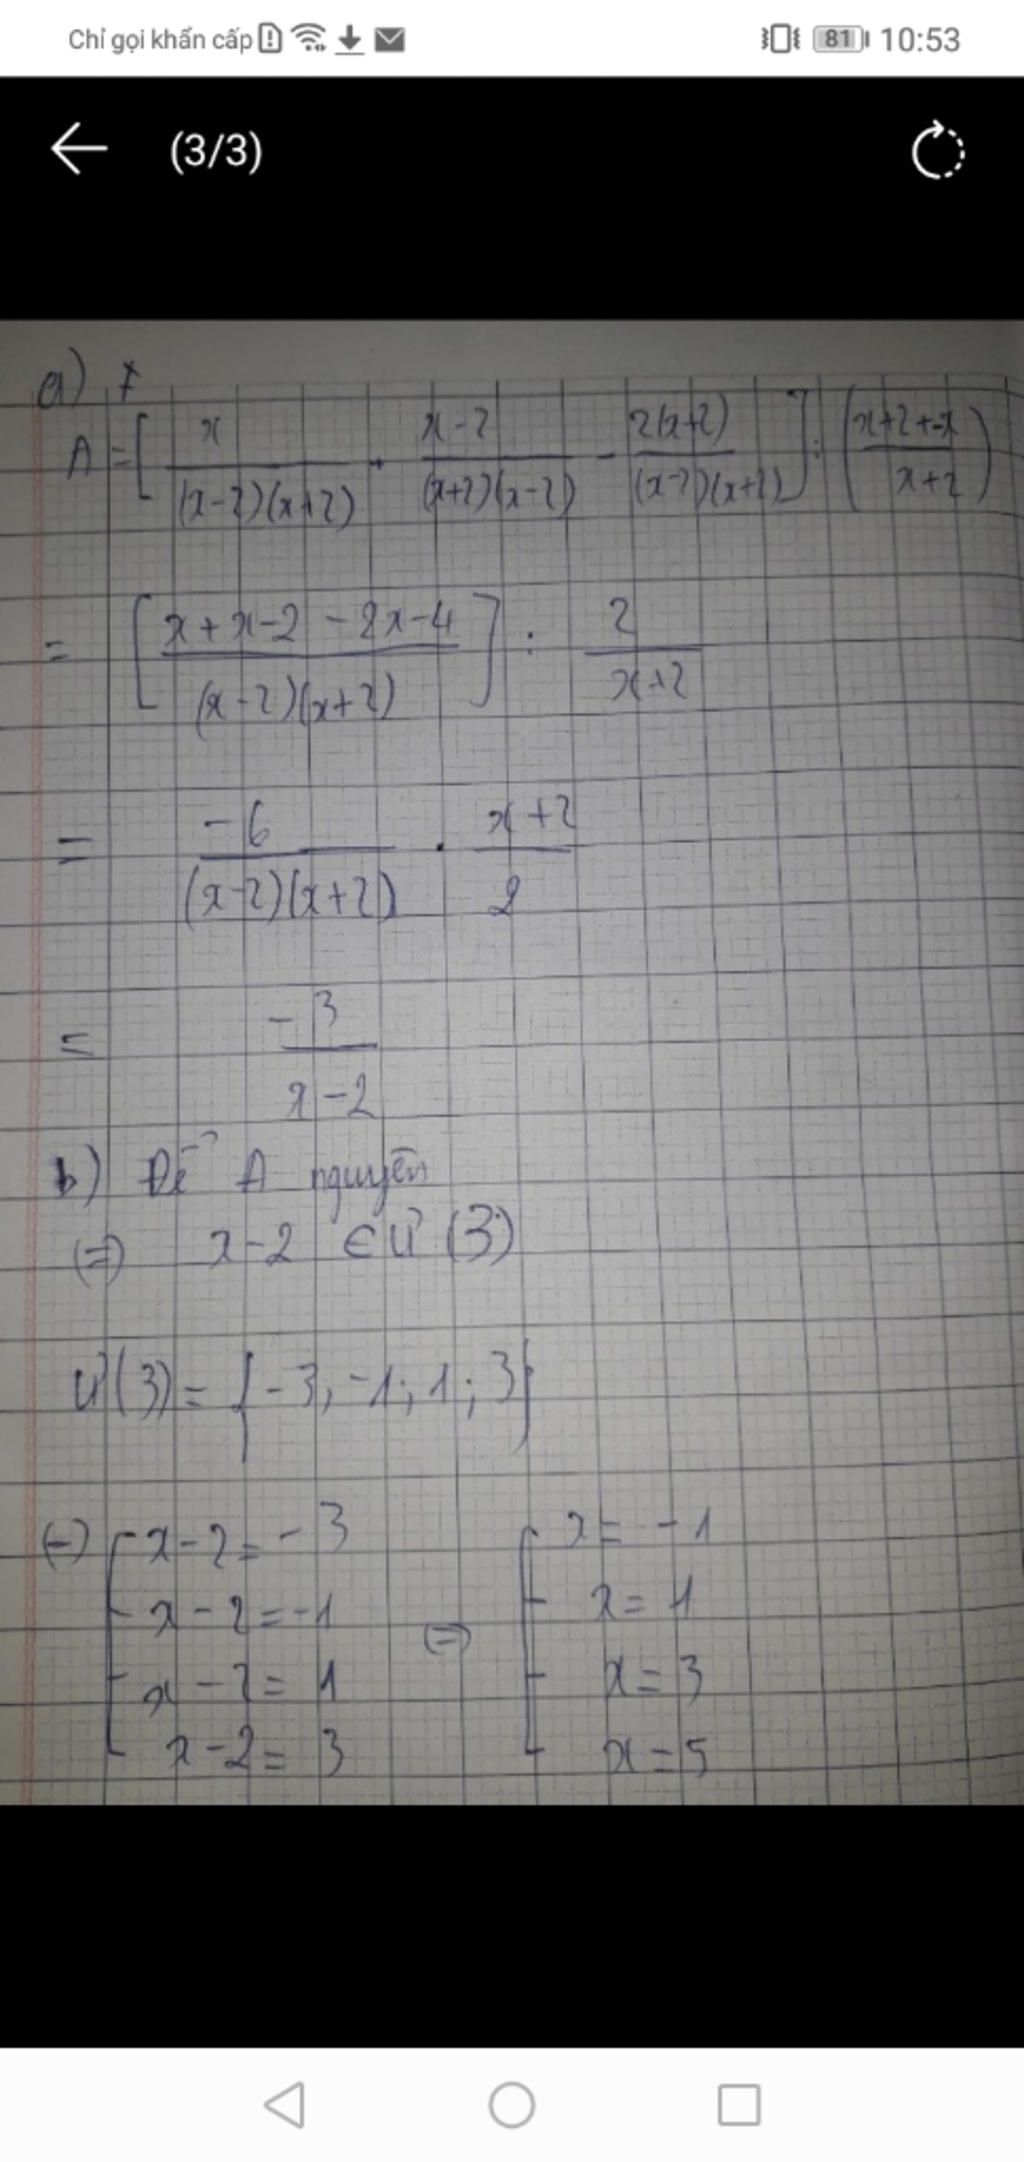 Chỉ gọi khẩn cấp 81 10:53
(3/3)
a) +
A = [ x/((x-2)(x+2)) + (x-2)/((x+2)(x-2)) - 2(x+2)/((x-2)(x+2)) ] : ( (x+2+-x)/(x+2) )
= [ (x+x-2-2x-4)/((x-2)(x+2)) ] : 2/(x+2)
= -6/((x-2)(x+2)) . (x+2)/2
= -3/(x-2)
b) Để A nguyên
(=) x-2 ∈ Ư (3)
Ư(3) = {-3, -1; 1; 3}
(=) [ x-2=-3 [ x=-1
x-2=-1 (=) x=1
x-2=1 x=3
x-2=3 x=5